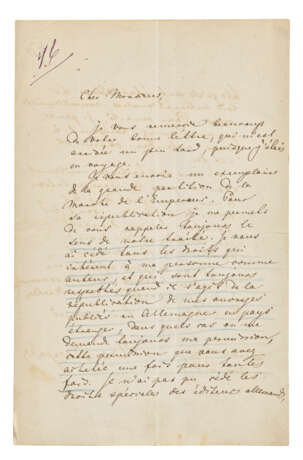 Cher Monsieur,
je vous remercie beaucoup
de votre bonne lettre, qui m'est
arrivée un peu tard, puisque j'étais
en voyage.
Je vous envoie un exemplaire
de la grande partition de la
Marche de l'Empereur. Pour
sa republication je me permets
de vous rappeler toujours le
sens de notre traité. Je vous
ai cédé tous les droits qui
restent à ma personne comme
auteur, et qui sont toujours
respectés quand il s'agit de la
republication de mes ouvrages
publiés en Allemagne en pays
étranger, dans quels cas on me
demande toujours ma permission,
cette permission que vous avez
achetée une fois pour toutes
fois. Je n'ai pas pu céder les
droits spéciales des éditeurs allemands,